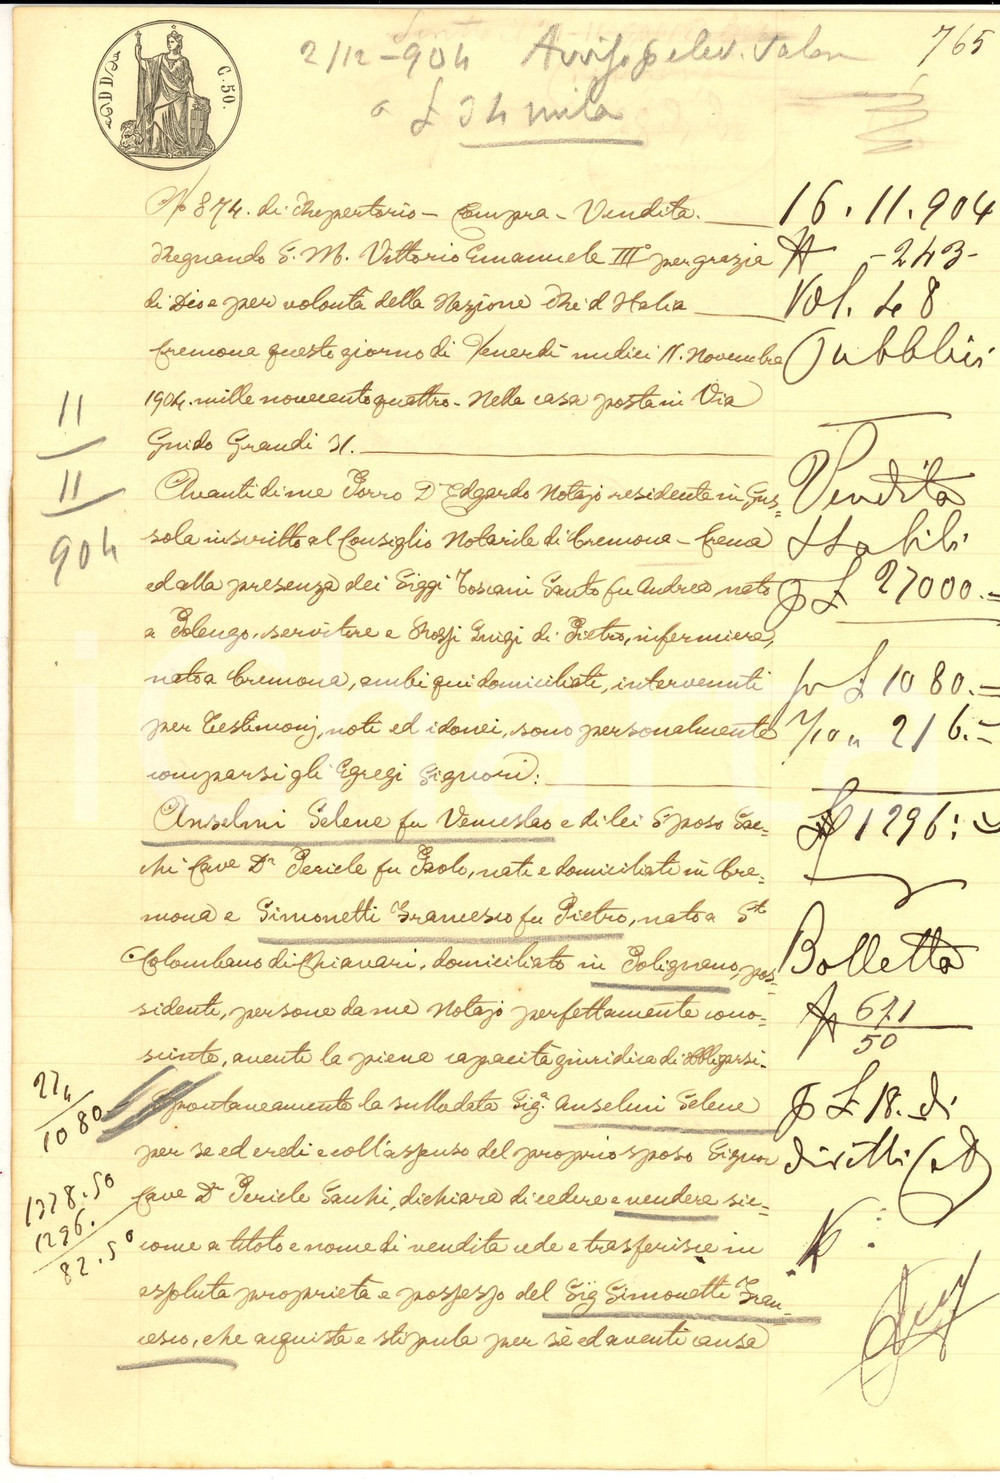 765
2/12-904 Avviso p elev. valore
a £ 34 mila
C. 50.
No 874. di Repertorio - Compra - Vendita.
Regnando S. M. Vittorio Emanuele III° per grazia
di Dio e per volontà della Nazione Re d'Italia
Cremona questo giorno di Venerdì undici 11. Novembre
1904. mille novecento quattro. Nella casa posta in Via
Guido Grandi 31.
Avanti di me Porro Dr Edgardo Notajo residente in Gus=
sola inscritto al Consiglio Notarile di Cremona - Crema
ed alla presenza dei Siggi Toscani Santo fu Andrea, nato
a Polengo, servitore e Rossi Luigi di Pietro, infermiere,
nato a Cremona, ambi qui domiciliati, intervenuti
per Testimonj, noti ed idonei, sono personalmente
comparsi gli Egregi Signori:
Anselmi Selene fu Venceslao e di lei Sposo Sac=
chi Cave Dr Pericle fu Paolo, nati e domiciliati in Cre=
mona e Simonetti Francesco fu Pietro, nato a St
Colombano di Chiavari, domiciliato in Polignano, pos=
sidenti, persone da me Notajo perfettamente cono=
sciute, aventi la piena capacità giuridica di obbligarsi.
Spontaneamente la sullodata Siga Anselmi Selene
per se ed eredi e coll'assenso del proprio sposo Signor
Cave Dr Pericle Sacchi, dichiara di cedere e vendere sic=
come a titolo e nome di vendita cede e trasferisce in
assoluta proprietà e possesso del Sig Simonetti Fran=
cesco, che acquista e stipula per sè ed aventi causa
16.11.904
N -243-
Vol. 48
Pubblici
Vendita
Stabili
p £ 27000.=
p £ 1080.=
2/10 " 216.=
£ 1296:=
Bolletta
N 671
50
p £ 18. di
diritti Cat
11
11
904
274
1080
1378.50
1296.
82.50